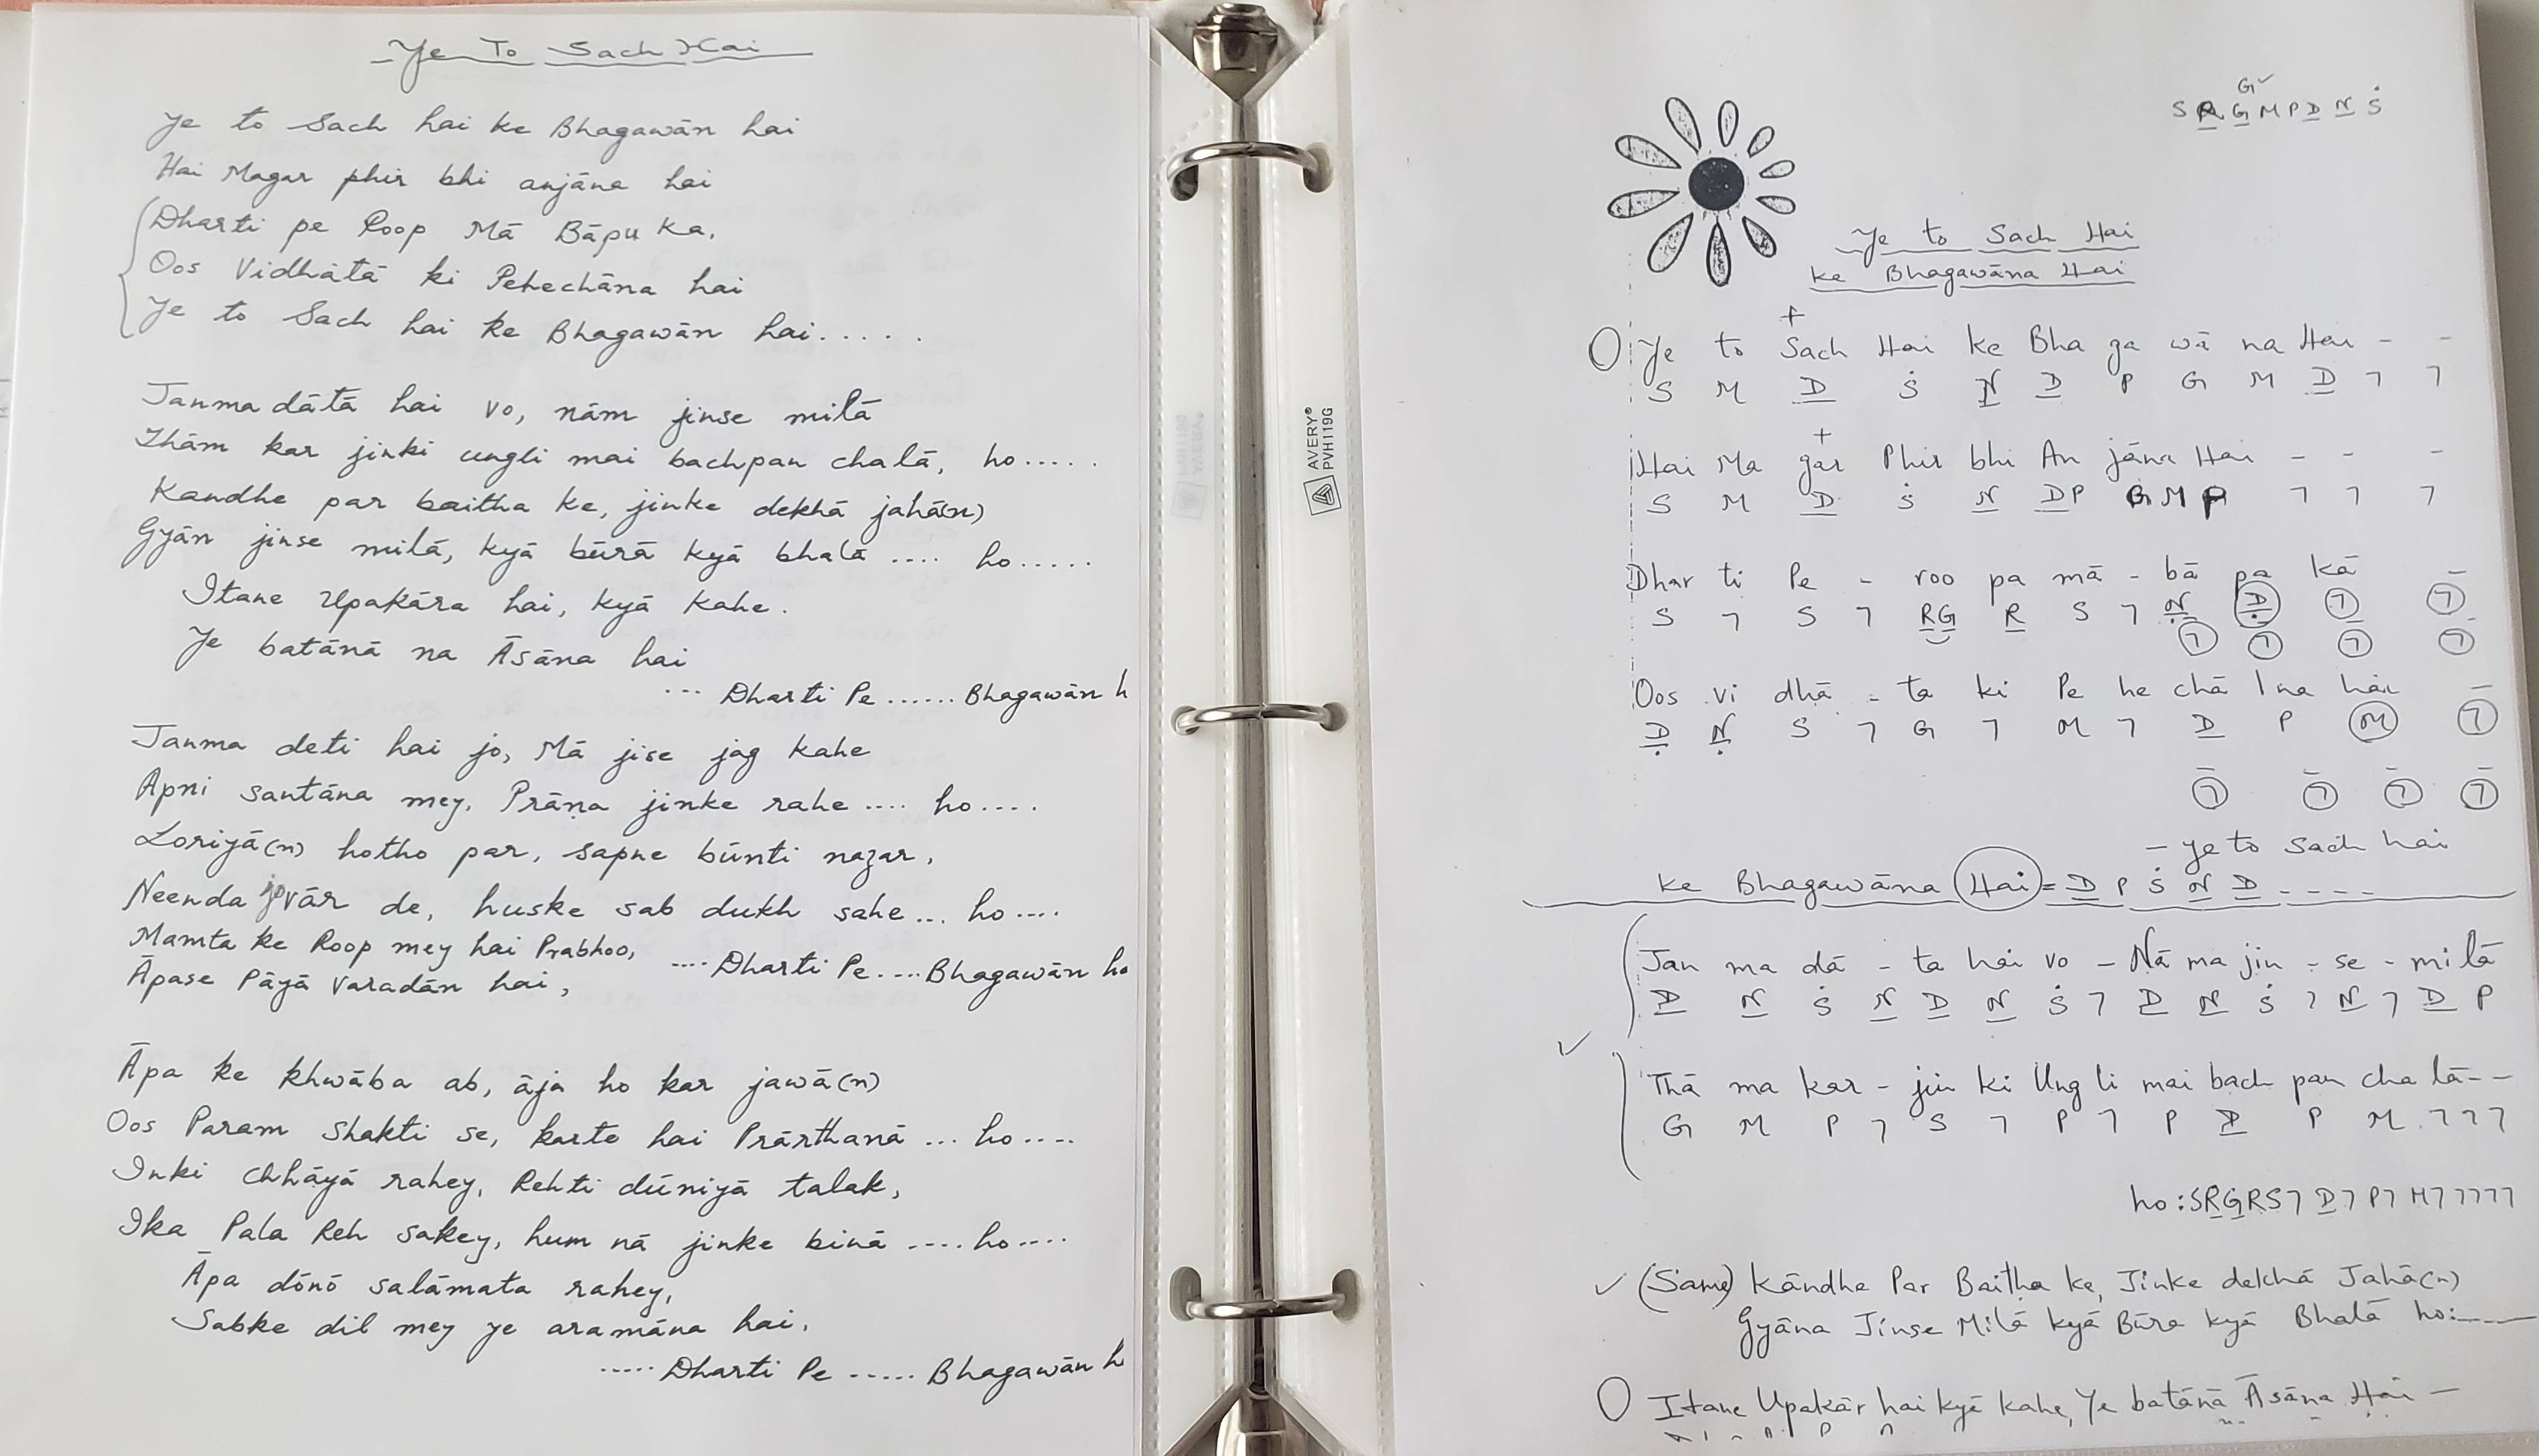 Ye To Sach Hai
Ye to Sach hai ke Bhagawān hai
Hai Magar phir bhi anjāna hai
Dharti pe Roop Mā Bāpu ka,
Oos Vidhātā ki Pehechāna hai
Ye to Sach hai ke Bhagawān hai.....
Janma dātā hai vo, nām jinse milā
Thām kar jinki ungli mai bachpan chalā, ho.....
Kandhe par baitha ke, jinke dekhā jahā(n)
Gyān jinse milā, kyā būrā kyā bhalā .... ho.....
Itane Upakāra hai, kyā kahe.
Ye batānā na Āsāna hai
... Dharti Pe ...... Bhagawān h
Janma deti hai jo, Mā jise jag kahe
Apni santāna mey, Prāṇa jinke rahe .... ho....
Loriyā(n) hotho par, sapne būnti nazar,
Neenda vār de, huske sab dukh sahe... ho....
Mamta ke Roop mey hai Prabhoo,
Āpase Pāyā Varadān hai,
.... Dharti Pe.... Bhagawān ha
Āpa ke khwāba ab, āja ho kar jawā(n)
Oos Param Shakti se, karte hai Prārthanā ... ho....
Inki chhāyā rahey, Rehti dūniyā talak,
Ika Pala Reh sakey, hum nā jinke binā .... ho....
Āpa dōnō salāmata rahey,
Sabke dil mey ye aramāna hai,
..... Dharti Pe ..... Bhagawān h
AVERY®
PVH119G
G ✓
S R̲ G̲ M P D̲ N̲ Ṡ
Ye to Sach Hai
ke Bhagawāna Hai
+
Ye to Sach Hai ke Bha ga wā na Hai - -
S M D̲ Ṡ N̲ D̲ P G M D̲ ㄱ ㄱ
+
Hai Ma gar Phir bhi An jāna Hai - - -
S M D̲ Ṡ N̲ D̲P G M P ㄱ ㄱ ㄱ
Dhar ti Pe - roo pa mā - bā pa kā -
S ㄱ S ㄱ R̲G̲ R̲ S ㄱ Ṇ̲ Ḍ̲ ㄱ ㄱ
ㄱ ㄱ ㄱ ㄱ
Oos vi dhā - ta ki Pe he chā na hai -
Ḍ̲ Ṇ̲ S ㄱ G ㄱ M ㄱ D̲ P M ㄱ
- - - -
ㄱ ㄱ ㄱ ㄱ
- ye to sach hai
ke Bhagawāna Hai = D̲ P Ṡ N̲ D̲ - - - -
Jan ma dā - ta hai vo - Nā ma jin - se - milā
D̲ N̲ Ṡ N̲ D̲ N̲ Ṡ ㄱ D̲ N̲ Ṡ ㄱ N̲ ㄱ D̲ P
Thā ma kar - jin ki Ung li mai bach pan cha lā - -
G M P ㄱ S ㄱ P ㄱ P D̲ P M ㄱ ㄱ ㄱ
ho : S R̲ G̲ R S ㄱ D̲ ㄱ P ㄱ M ㄱ ㄱ ㄱ ㄱ ㄱ
✓ (Same) Kāndhe Par Baitha ke, Jinke dekhā Jahā(n)
Gyāna Jinse Milā kyā Būra kyā Bhalā ho:
Itane Upakār hai kyā kahe, Ye batānā Āsāna Hai -